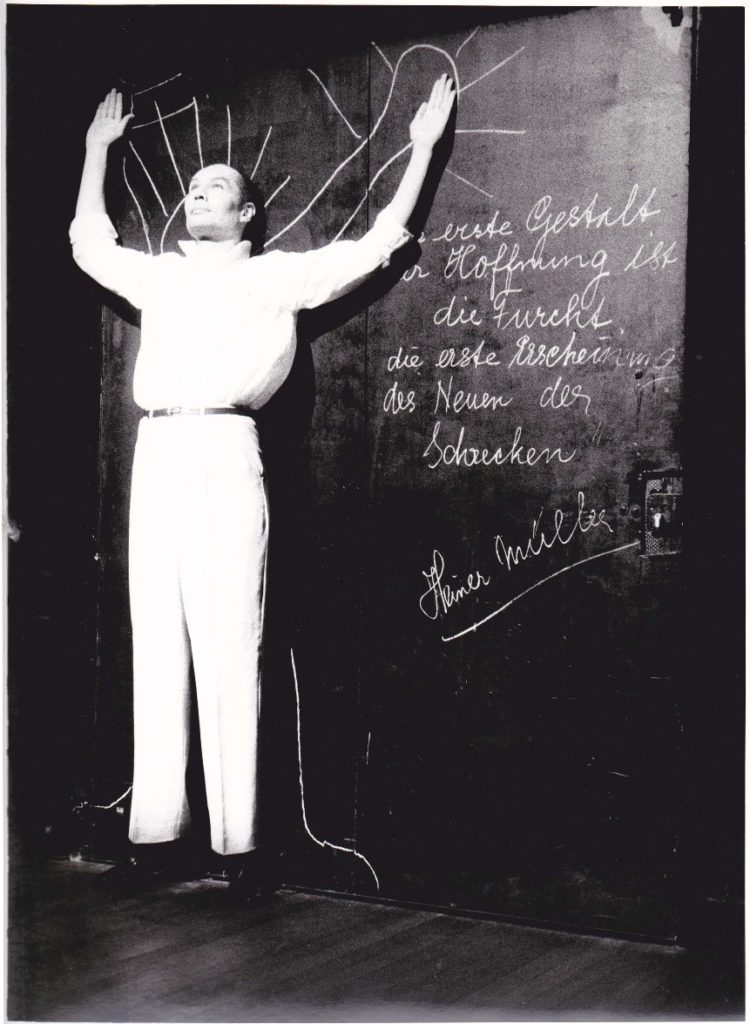 erste Gestalt
Hoffnung ist
die Furcht,
die erste Erscheinung
des Neuen der
Schrecken"
Heiner Müller